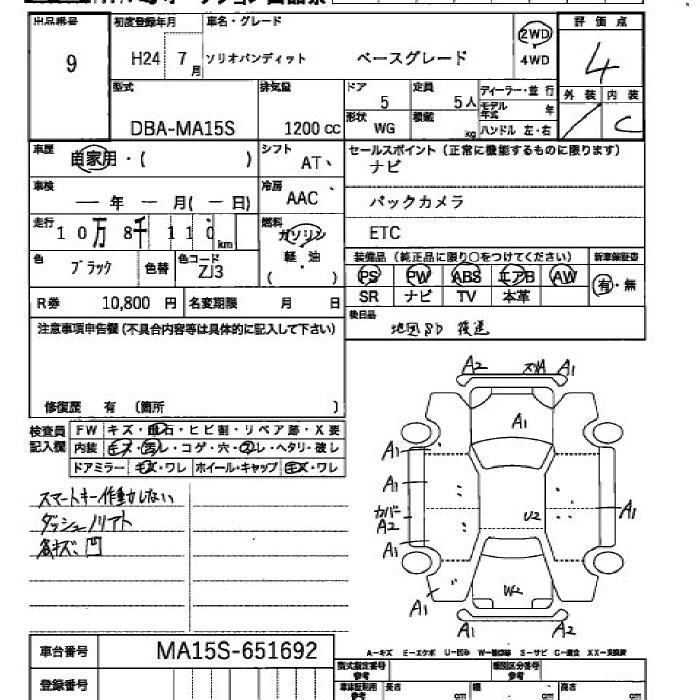 出品番号 初度登録年月 車名・グレード 2WD 評価点
9 H24 7月 ソリオバンディット ベースグレード 4WD 4
型式 排気量 ドア 定員 ディーラー・並行 外装 内装
5 5人 モデル年式 年
DBA-MA15S 1200 cc 形状 WG 積載 kg ハンドル 左・右 C
車歴 自家用・( ) シフト AT、 セールスポイント (正常に機能するものに限ります)
ナビ
車検 ― 年 ― 月(― 日) 冷房 AAC バックカメラ
走行 10万8千110km 燃料 ガソリン ETC
軽・油
( )
色 ブラック 色替 色コード ZJ3 装備品 (純正品に限り○をつけてください) 新車保証書
PS PW ABS エアB AW 有・無
R券 10,800 円 名変期限 月 日 SR ナビ TV 本革
注意事項申告欄 (不具合内容等は具体的に記入して下さい) 後日品
地図SD 後送
修復歴 有 (箇所 )
検査員記入欄 FW キズ・飛石・ヒビ割・リペア跡・X要
内装 キズ・汚レ・コゲ・穴・スレ・ヘタリ・破レ
ドアミラー キズ・ワレ ホイール・キャップ キズ・ワレ
スマートキー作動しない
凹
A2 A1
A1
A1
A1
カバーA2 U2 A1
A1
W2
A1
A1 A2
車台番号 MA15S-651692
A-キズ E-エクボ U-凹み W-補修跡 S-サビ C-腐食 XX-交換済
登録番号 型式指定番号 参考 類別区分番号 参考
車庫証明用 参考 長さ cm 幅 cm 高さ cm